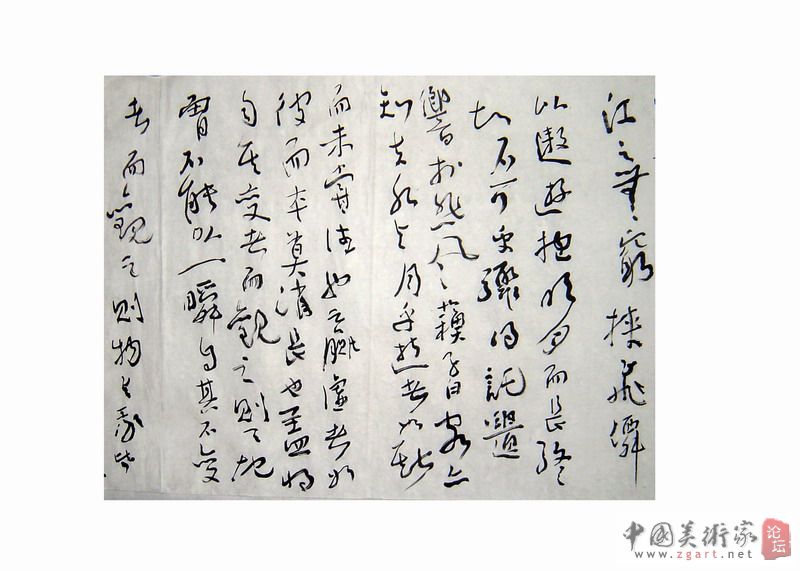 江之無〻窮挾飛僊
以遨遊抱明月而長終
知不可乎驟得託遺
響於悲風〻蘇子曰客亦
知夫水與月乎逝者如斯
而未嘗往也贏虛者如
彼而卒莫消長也蓋將
自其變者而觀之則天地
曾不能以一瞬自其不變
者而觀之則物與我皆
中國美術家
论坛
www.zgart.net